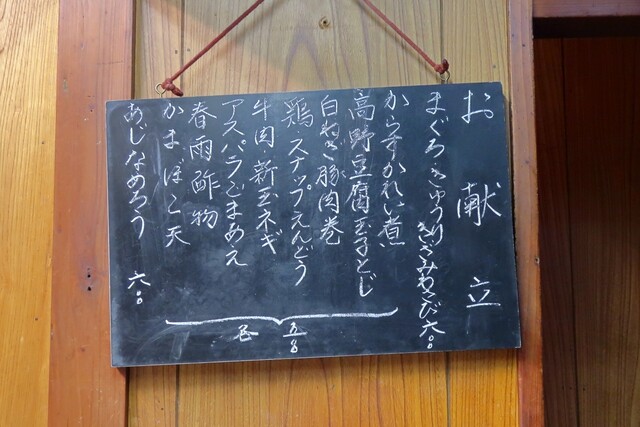 お献立
まぐろきゅうりきざみわさび 六〇〇
からすかれい煮
高野豆腐玉子とじ
白ねぎ豚肉巻
鶏・スナップえんどう
牛肉新玉ネギ
アスパラごまあえ
春雨酢物
かまぼこ天
あじなめろう 六〇〇
各 五〇〇